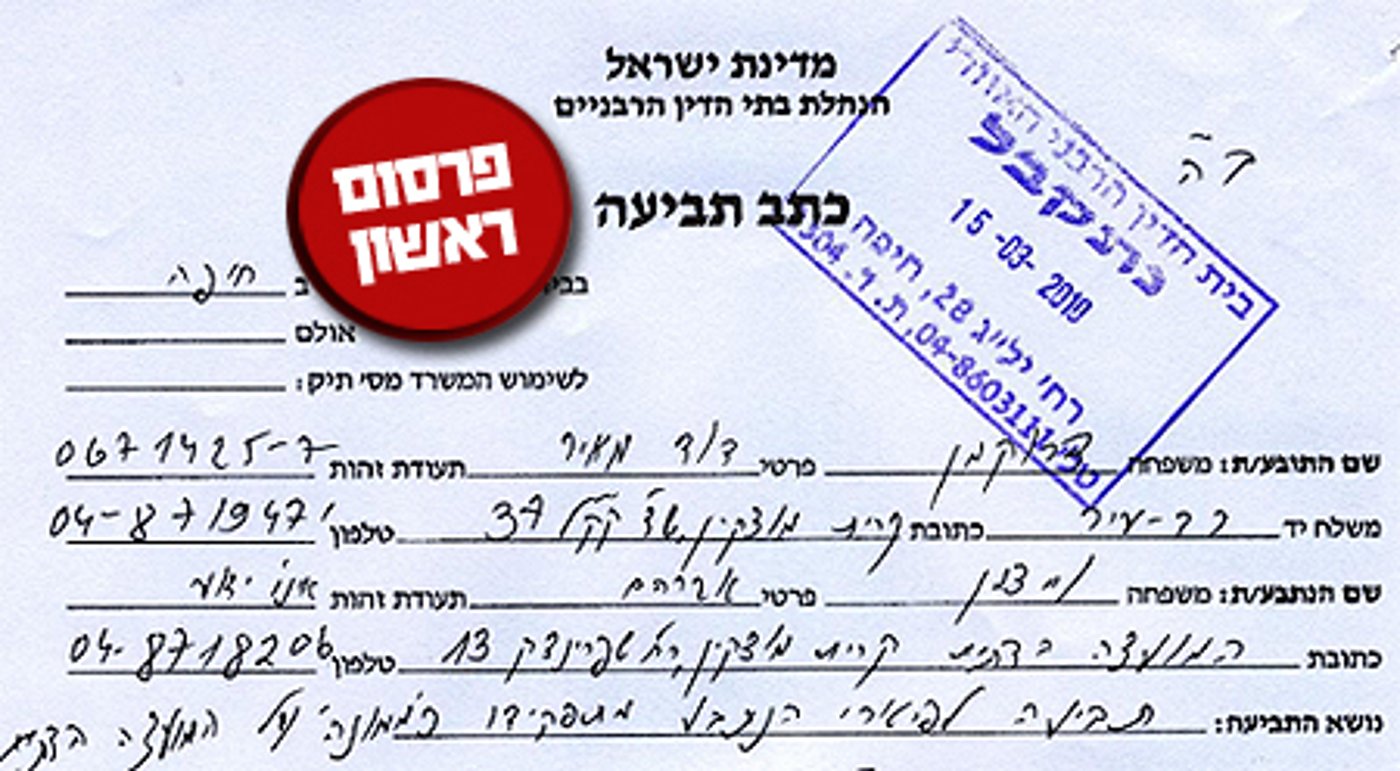 מדינת ישראל
הנהלת בתי הדין הרבניים
כתב תביעה
פרסום
ראשון
בית הדין הרבני האזורי
נתקבל
15-03-2010
רח' ילי"ג 28, חיפה
טל' 04-8603111, ת.ד.
חיפה
אולם
לשימוש המשרד מס' תיק:
שם התובע/ת: משפחה דרוקמן פרטי דוד מאיר תעודת זהות 0671425-7
משלח יד רב-עיר כתובת קרית מוצקין, שד' קק"ל 37 טלפון 04-871947
שם הנתבע/ת: משפחה פרטי אברהם תעודת זהות אינו ידוע
כתובת המועצה הדתית קרית מוצקין, רח' שפרינצק 13 טלפון 04-8718206
נושא התביעה: תביעה לפיטורי הנתבע מתפקידו כ"ממונה" על המועצה הדתית